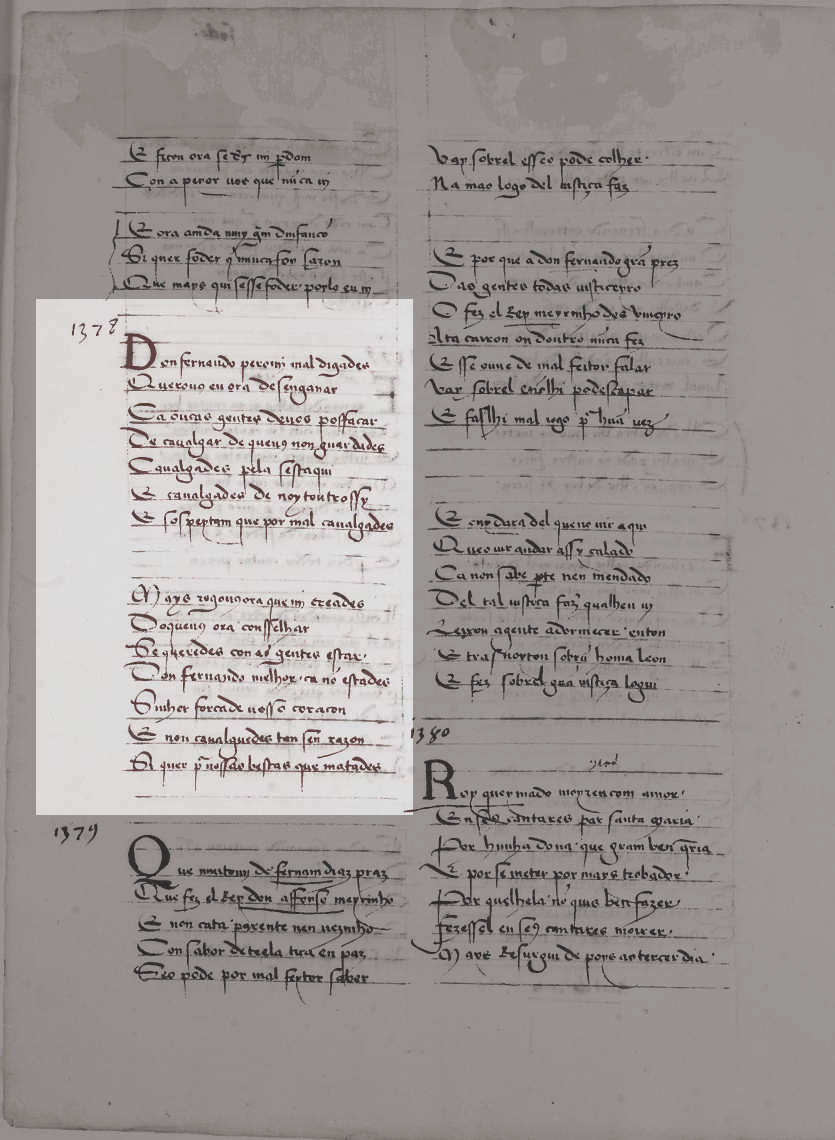 E ficou ora se d's mi p̃dom
Con a peyor uos que nũca ui
E ora ainda muy gm̃ dinfançõ
Si quer foder q̃ nunca foy sazon
Que mays qui sesse foder poylo eu ui
1378
Don fernando pero mi mal digades
Querouꝯ eu ora desenganar
Ca ouças gentes deuos possaçar
De caualgar de queuꝯ non guardades
Caualgades pela sestaqui
E caualgades de noytoutrossy
E sospeytam que por mal caualgades
Mays rogouꝯora que mi creades
Doqueuꝯ ora conselhar
Se queredes con as gentes estar
Don fernando melhor ca nõ estades
Sinher forcade uosso coraçon
E non caualguedes tan sen razon
Si quer p̃ uossas bestas que matades
1379
Que muytomi de fernam diaz praz
Que fez el Rey don affonso meyrinho
E non cata parente nen uezinho
Con sabor de teela tira en paz
Seo pode por mal feytor saber
Vay sobrel esseo pode colher
Na mao logo del iustiça faz
E por que a don fernando grã prez
Das gentes todas iusticeyro
O fez el Rey meyrinho des viueyro
Ata carron on doutro nũca fez
Esse ouue de mal feitor falar
Vay sobrel enõlhi podescapar
E faslhi mal iogo p̃ hũa uez
E cuydara del queno uir aqui
Queo uir andar assy calado
Ca non sabe p̃te nen mendado
Del tal iustiça faz qualheu ui
Leixou agente adormecer enton
E trasnoytou sobrũ home a leon
E fez sobrel grã iustiça logui
1380
Roy queymado moyreu com amor
En seꝯ cantares par santa maria
Por hunha dona que gram ben q̃ria
E por se meter por mays trobador
Por quelhela nõ quis ben fazer
Fezessel en seꝯ cantares morrer
Mays Resurgiu de poys ao tercer dia